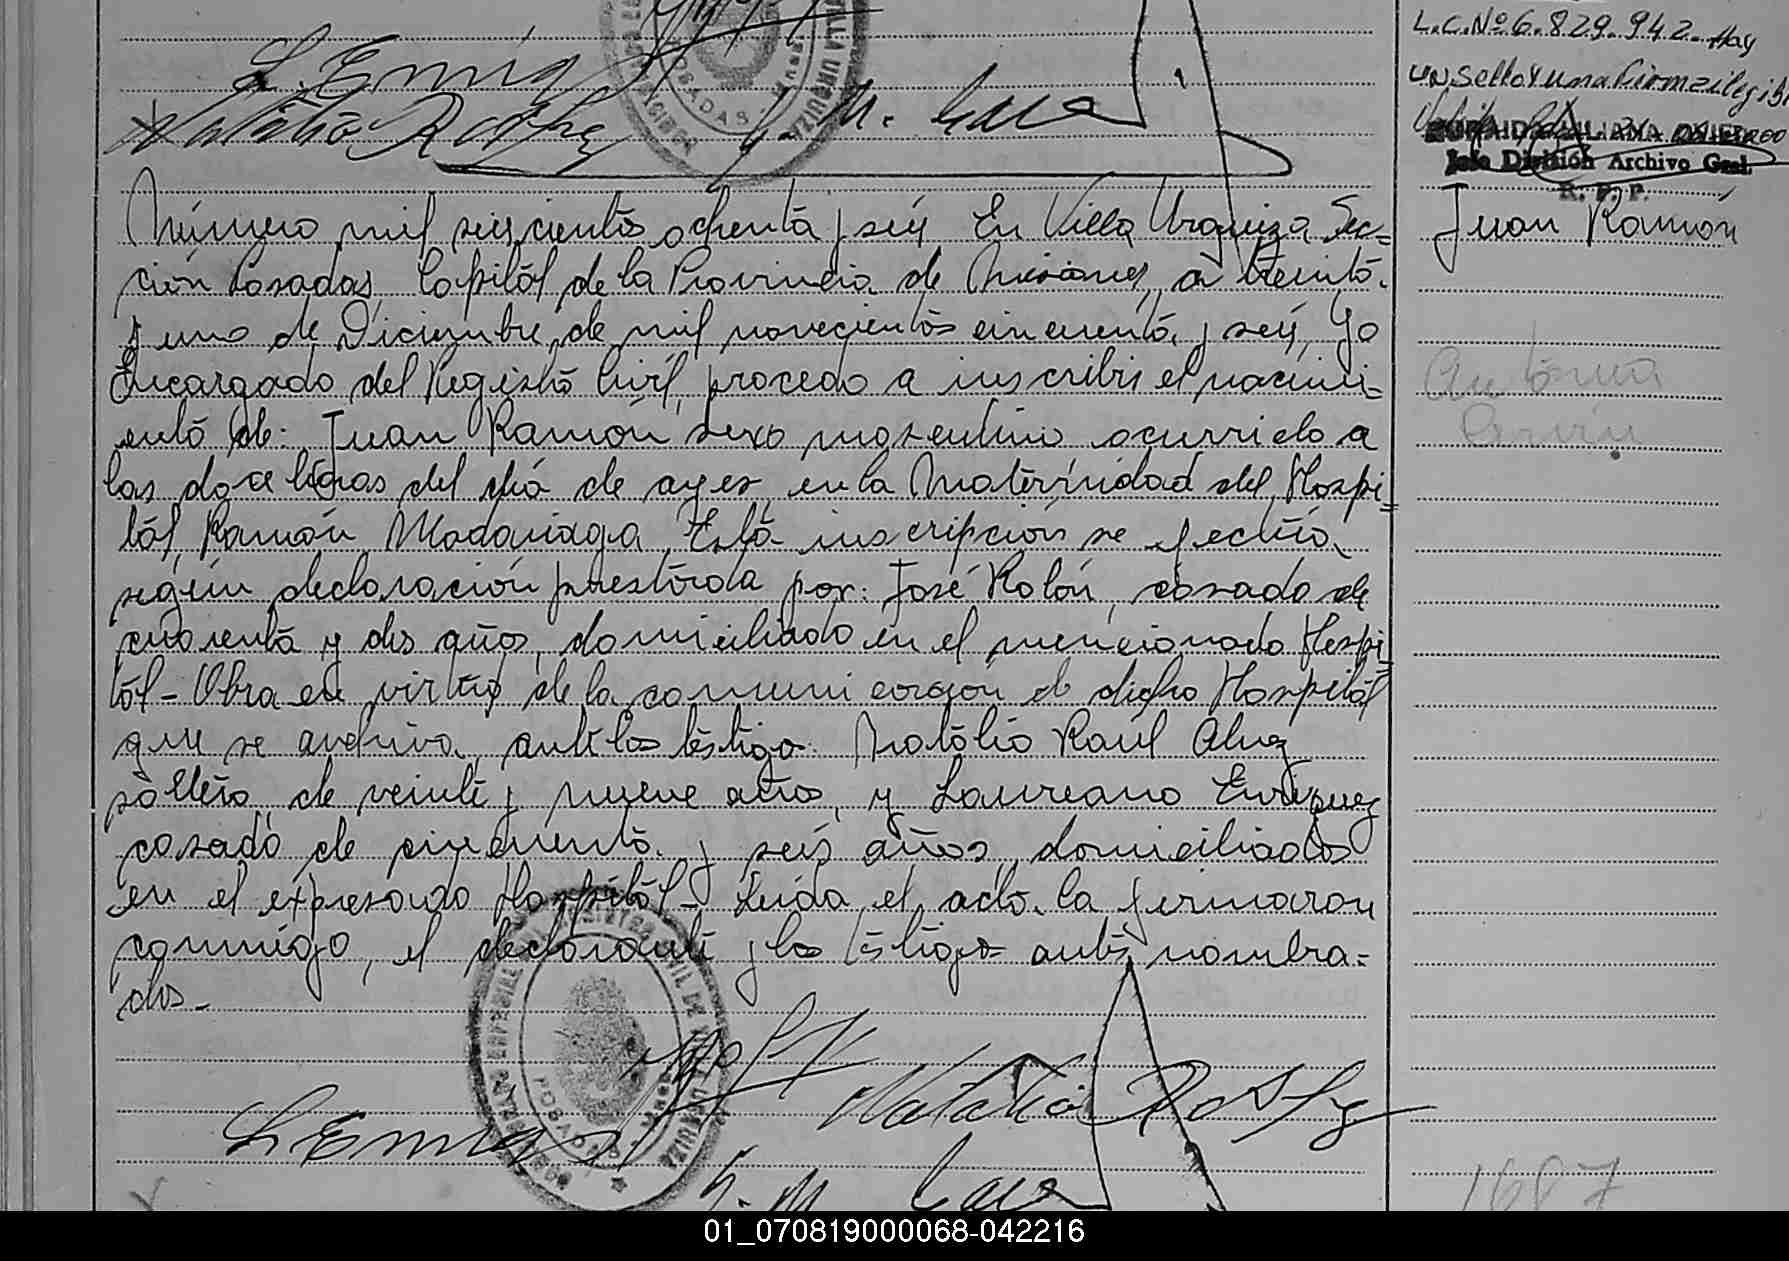 L.C.Nº 6.829.942. Hay
un sello y una firma ilegible
Jefe División Archivo Gral.
R. P. P.
Juan Ramón
L. Enriq
Natalio R
VILLA URQUIZA
POSADAS
Número mil seiscientos ochenta y seis En Villa Urquiza Sec=
ción Posadas, Capital de la Provincia de Misiones, a treinta
y uno de Diciembre de mil novecientos cincuenta y seis, Yo
Encargado del Registro Civil, procedo a inscribir el nacimi-
ento de: Juan Ramón sexo masculino ocurrido a
las doce horas del día de ayer, en la Maternidad del Hospi=
tal, Ramón Madariaga, Esta inscripción se efectúa
según declaración prestada por: José Rolón, casado de
cuarenta y dos años, domiciliado en el mencionado Hospi=
tál - Obra en virtud de la comunicación de dicho Hospital
que se archiva, ante los testigos: Natálio Raúl Aluz
soltero, de veinte y nueve años, y Laureano Enriquez
casado de cincuenta y seis años, domiciliados
en el expresado Hospital - Leída el acta la firmaron
conmigo, el declarante y los testigos antes nombra=
dos -
POSADAS
L Enriq
Natalio R
1687
01_070819000068-042216